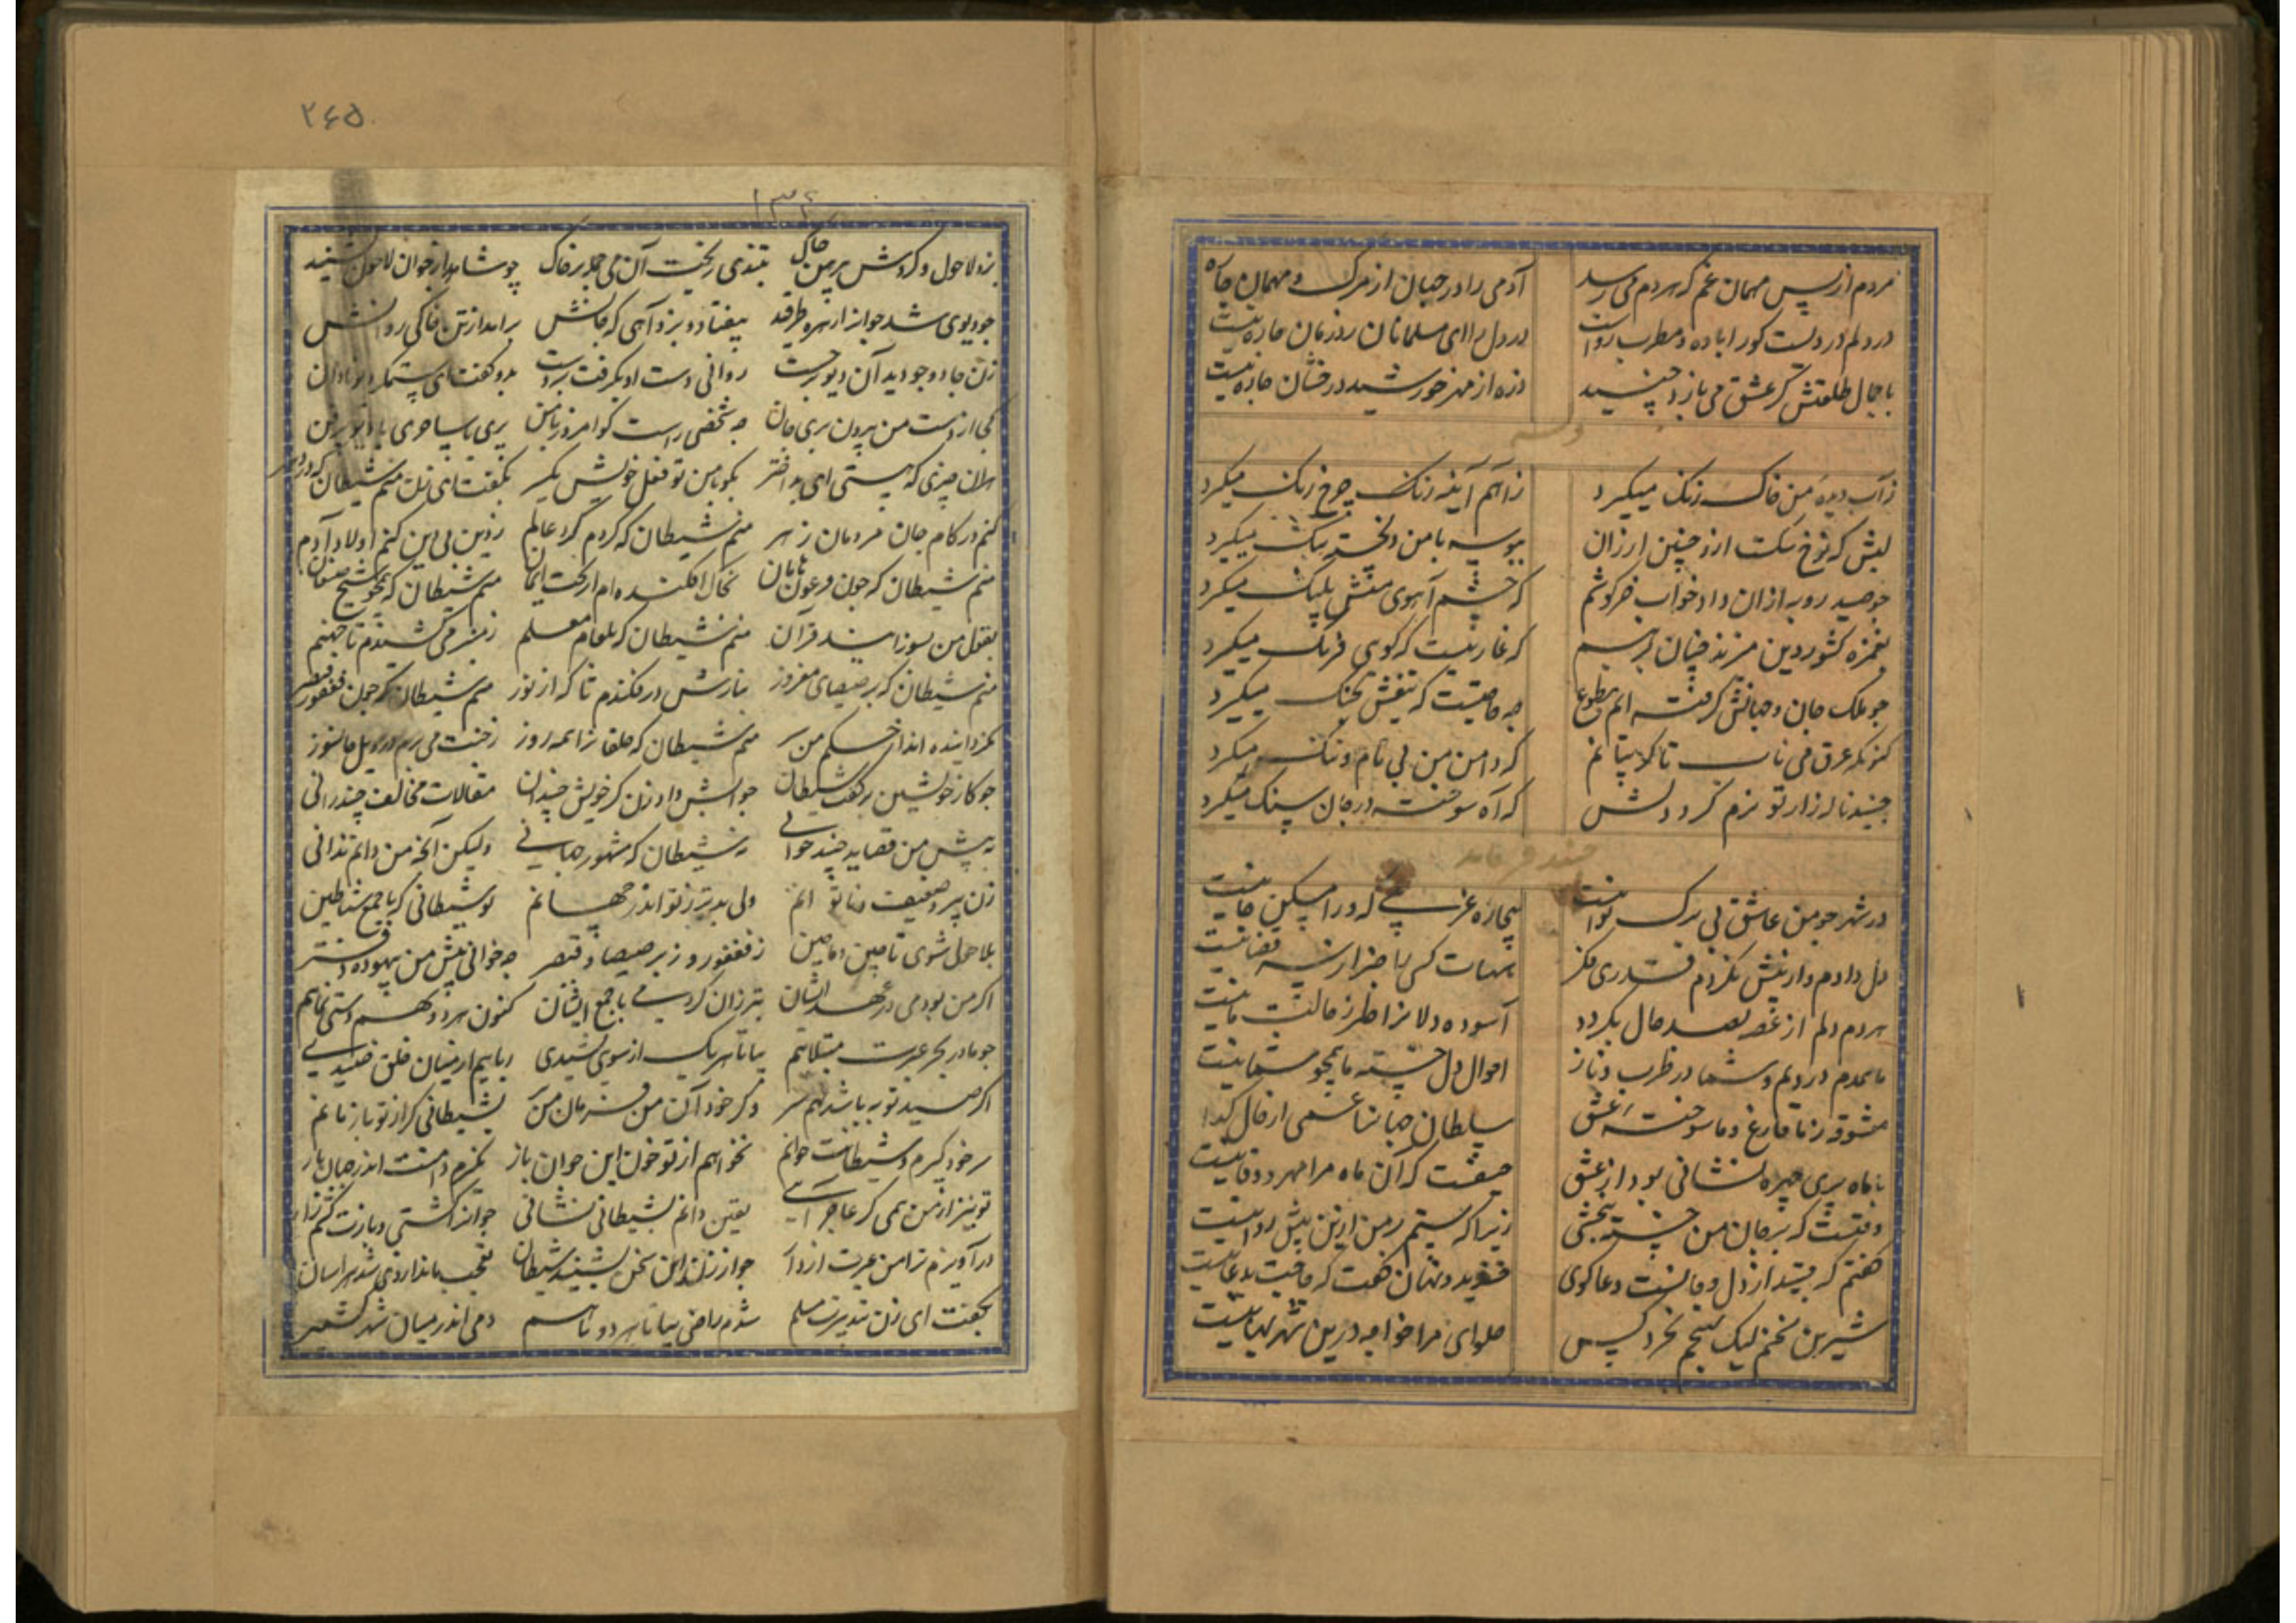 مردم از پس مهمان غم که هر دم می رسد آدمی را در جهان از مرک و مهمان چاره
در دلم درد است کو را باده و مطرب دواست در دل ای مسلمانان درمان چاره نیست
با جمال طلعتش کر عشق می بازد جنید ذره از مهر خورشید درفشان چاره نیست
وله
ز آب دیده من خاک رنک میکیرد ز آهم آینه زنک چرخ زنک میکیرد
لبش که نرخ ارزان ببوسه با من میکیرد
جو صید روبه از آن داد خواب خرکوشم که چشم آهوی پلنک میکیرد
بغمزه کشور دین میزند که غارتیست که کوی فرنک میکیرد
جو ملک جان و جهانش کرفته ام بطوع چه حاجتست که تیغش بجنک میکیرد
که دامن من بی نام و ننک میکیرد
جنید ناله زار تو نرم کرد دلش که آه سوخته در جان سنک میکیرد
جنید فرماید
در شهر جو من عاشق بی برک و نوا نیست بیچاره غریبی که ورا مسکن و جا نیست
دل دادم و از پیش نکردم قدری فکر هیهات کسی را خبر از سر قضا نیست
هر دم دلم از غصه بصد حال بکردد آسوده دلانرا خبر از حالت ما نیست
ما همدم دردیم و شما در طرب و ناز احوال دل خسته ما همچو شما نیست
معشوقه ز ما فارغ و ما سوخته عشق سلطان جهانرا غمی از حال کدا
با ماه پری چهره نشانی بود از عشق حیفست که آن ماه مرا مهر و وفا نیست
وقتست که بر جان من خسته ببخشی زیرا که ستم بر من ازین بیش روا نیست
کفتم که جنید از دل و جانست دعا کوی خندید و نهان کفت که حاجت بدعا نیست
شیرین سخنم لیک بهیچم نخرد کس حلوای مرا خواجه درین شهر بها نیست
۲۶۵
۱۳۶
بزد لاحول و کردش پیرهن چاک بتندی ریخت آن می جمله بر خاک چو شاهد از جوان لاحول بشنید
جو دیوی شد جوانرا زهره بیفتاد و بزد آهی که جانش برآمد از تن خاکی روانش
زن جادو جو دید آن دیو برجست روانی دست او بکرفت بدو کفت ای ستمکر دیو نادان
کجا از دست من بیرون بری جان چه شخصی راست کو امروز با من پری یا ساحری یا دیو رهزن
بدان چیزی که هستی ای بداختر بکو با من تو فعل خویش یکسر بکفت ای زن منم شیطان که در دهر
کنم در کام جان مردمان زهر منم شیطان که کردم کرد عالم ز دین بی دین کنم اولاد آدم
منم شیطان که جون فرعون هامان بخاک افکنده ام از تخت ایمان منم شیطان که همچو شیخ صنعان
بقول من بسوزانید قرآن منم شیطان که بلعام معلم ز منبر می کشیدم تا جهنم
منم شیطان که برصیصای مغرور بنارش در فکندم تا که از نور منم شیطان که جون فغفور قیصر
نکردانیده اند از حکم من سر منم شیطان که خلقانرا همه روز ز جنت می برم در ویل جانسوز
جو کار خویشتن برکفت شیطان جوابش داد زن کز خویش چندان مقالات مخالف چند رانی
به پیش من قصاید چند خوانی نه شیطان که مشهور جهانی ولیکن آنچه من دانم ندانی
زن پیر و ضعیف و ناتوانم ولی بدتر ز تو اندر جهانم تو شیطانی که با جمع شیاطین
بلاحول شوی تا چین و ماچین ز فغفور و ز برصیصا و قیصر چه خوانی پیش من بیهوده دفتر
اکر من بودمی در عهد ایشان بتر زان کردمی با جمع ایشان کنون هر دو بهم دستی نمایم
جو ما در بحر عبرت مبتلاییم بیا تا هر یک از سویی رباییم از میان خلق صیدی
اکر صید تو به باشد نهم سر و کر خود آن من فرمان من بر بشیطانی کر از تو باز مانم
سر خود کیرم و شیطانت خوانم نخواهم از تو خون این جوان باز نکیرم دامنت اندر جهان باز
تو نیز از من همی کر عاجز آیی یقین دانم بشیطانی نشانی جوانرا کشتی
در آویزم ترا من جو از زن این سخن بشنید شیطان تعجب ماند از وی شد هراسان
بکفت ای زن تدبیرت مسلم شدم راضی بیا تا هر دو باهم دمی اندر میان شهر